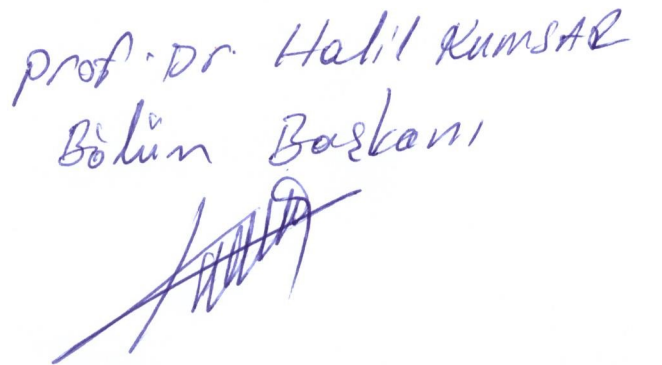 Prof. Dr. Halil KUMSAR
Bölüm Başkanı